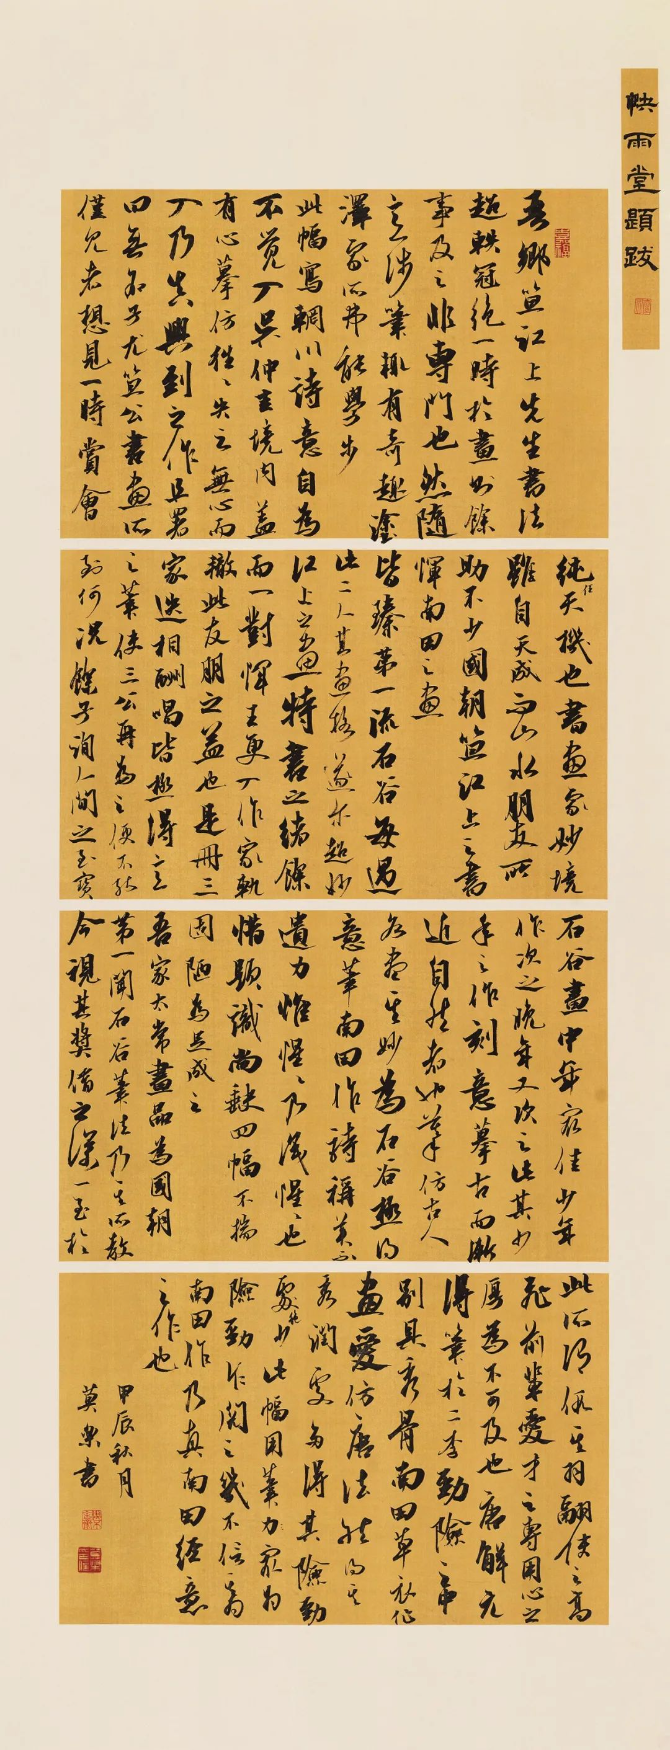 快雨堂題跋
吾鄉笪江上先生書法
超軼冠絶一時於畫則餘
事及之非專門也然隨
意涉筆輒有奇趣塗
澤家所弗能學步
此幅寫輞川詩意自為
不覺入吳仲圭境內蓋
有心摹仿往往失之無心而
入乃真興到之作且署
曰無名子尤笪公書畫所
僅見者想見一時賞會
純任天機也書畫家妙境
雖自天成而山水朋友所
助不少國朝笪江上之書
惲南田之畫
皆臻第一流石谷每過
此二人其畫格遂亦超妙
江上之畫特書之緒餘
而一對惲王更入作家軌
轍此友朋之益也是冊三
家迭相酬唱皆極得意
之筆使三公再為之便不能
到何況餘子詢人間之至寶
石谷畫中年最佳少年
作次之晚年又次之此其少
年之作刻意摹古而漸
近自然者如筆仿古人
各盡其妙為石谷極得
意筆南田作詩稱美不
遺力惟惺惺乃識惺惺也
惜題識尚缺四幅不揣
固陋為足成之
吾家太常畫品為國朝
第一聞石谷筆法乃其所教
今視其獎借之深一至於
此所謂假其羽翮使之高
飛前輩愛才之專用心之
厚為不可及也唐解元
得筆於二李勁險之中
別具秀骨南田草衣作
畫愛仿唐法然得其
秀潤處多得其險勁
處少此幅用筆力最為
險勁乍閱之幾不信其為
南田作乃真南田經意
之作也
甲辰秋月
莫樂書